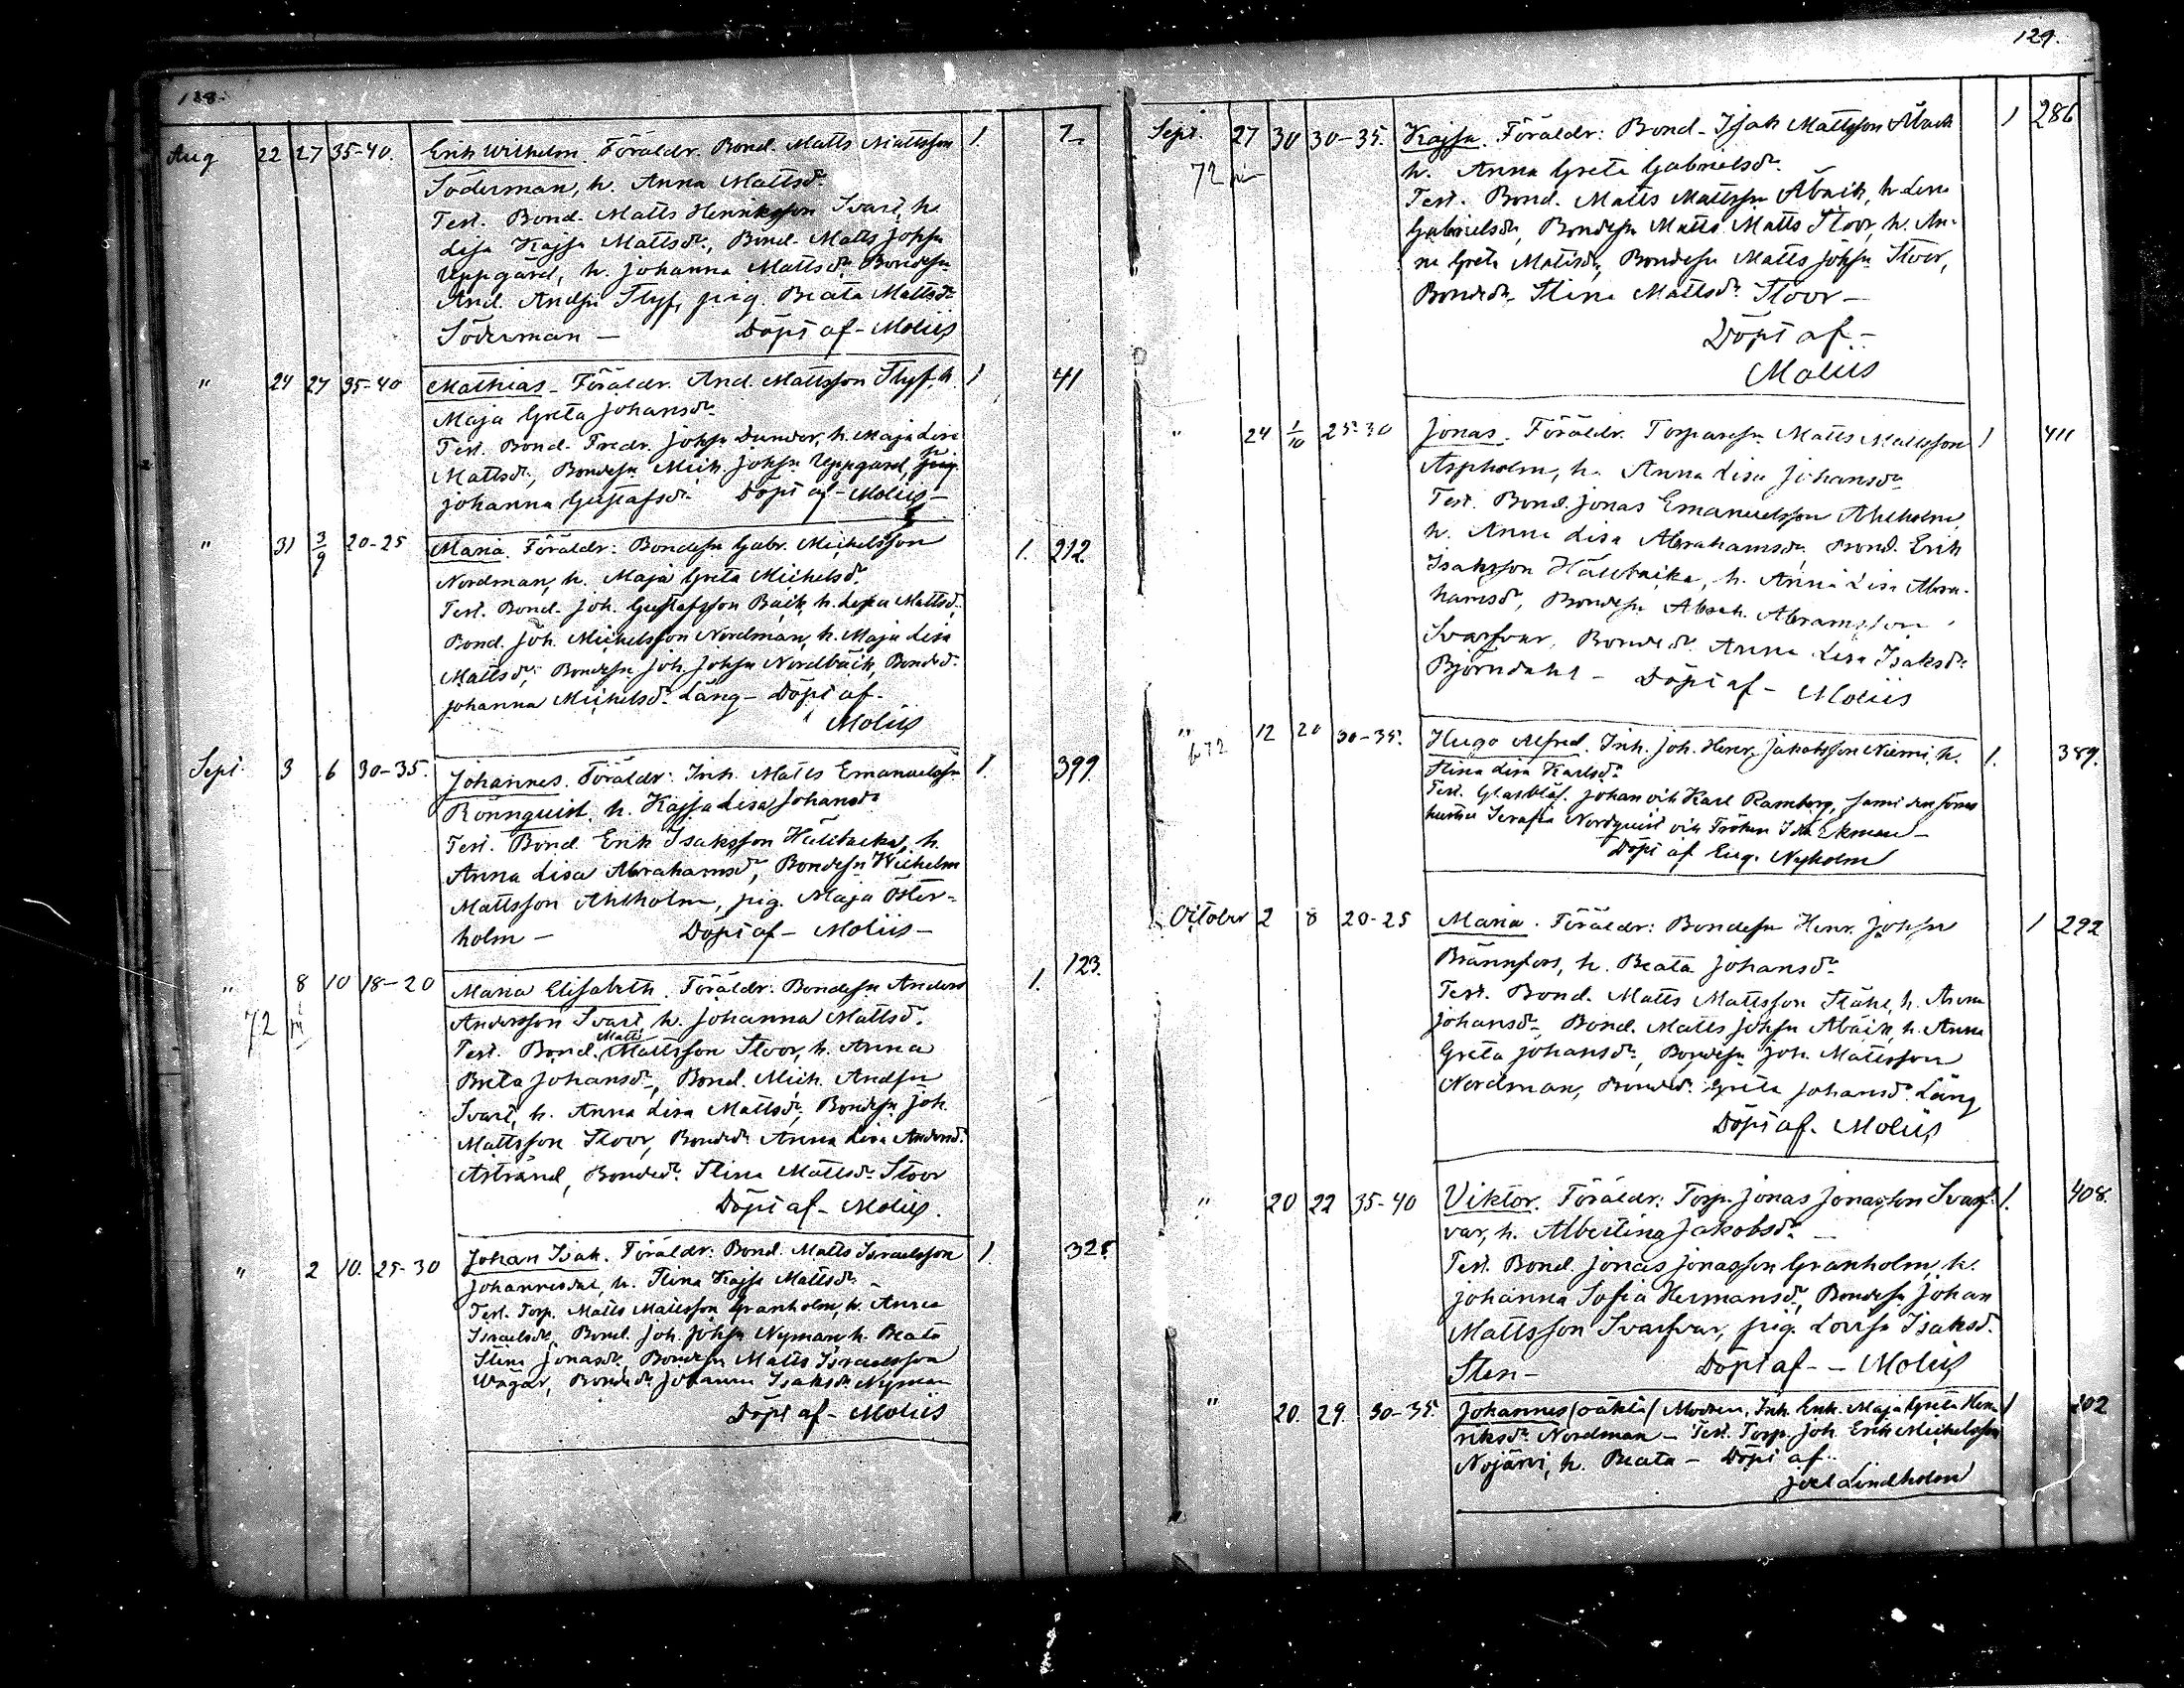 128.
Aug 22 27 35-40. Erik Wilhelm. Föräldr. Bond. Matts Mattsson 1. 7
Söderman, h. Anna Mattsdr.
Test. Bond. Matts Henriksson Svart, h.
Lisa Kajsa Mattsdr., Bond. Matts Johsn
Uppgård, h. Johanna Mattsdr. Bondesn
And. Andsn Styf, pig. Beata Mattsdr
Söderman — Döpt af - Moliis
" 24 27 35-40 Mathias - Föräldr. And. Mattsson Styf, h. 1 41
Maja Greta Johansdr.
Test. Bond. Fredr. Johsn Dunder, h. Maja Lisa
Mattsdr., Bondesn Mich. Johsn Uppgård, pig.
Johanna Gustafsdr. Döpt af - Moliis -
" 31 3/9 20-25 Maria. Föräldr: Bondesn Gabr. Michelsson 1. 212.
Nordman, h. Maja Greta Michelsdr.
Test. Bond. Joh. Gustafsson Bäck, h. Lisa Mattsdr.
Bond. Joh. Michelsson Nordman, h. Maja Lisa
Mattsdr., Bondesn Joh. Johsn Nordbäck, Bondedr.
Johanna Michelsdr. Lång - Döpt af -
Moliis
Sept 3 6 30-35. Johannes. Föräldr: Inh. Matts Emanuelssn 1. 399.
Rönnquist, h. Kajsa Lisa Johansdr
Test. Bond. Erik Isaksson Hälibacka, h.
Anna Lisa Abrahamsdr, Bondesn Wilhelm
Mattsson Ahlholm, pig. Maja Öster-
holm - Döpt af - Moliis -
" 8 10 18-20 Maria Elisabeth. Föräldr: Bondesn Anders 1. 123.
72 Andersson Svart, h. Johanna Mattsdr.
Test. Bond. Matts Mattsson Stoor, h. Anna
Brita Johansdr, Bond. Mich. Andsn
Svart, h. Anna Lisa Mattsdr, Bondesn Joh.
Mattsson Stoor, Bondedr. Anna Lisa Andersdr.
Åstrand, Bondedr. Stina Mattsdr. Stoor
Döpt af - Moliis.
" 2 10. 25-30 Johan Isak. Föräldr: Bond. Matts Israelsson 1. 325.
Johannesdal, h. Stina Kajsa Mattsdr. -
Test. Torp. Matts Mattsson Granholm, h. Anna
Israelsdr, Bond. Joh. Johsn Nyman, h. Beata
Stina Jonasdr, Bondesn Matts Israelsson
Wägar, Bondedr. Johanna Isaksdr. Nyman
Döpt af - Moliis
129.
Sept. 27 30 30-35. Kajsa. Föräldr: Bond. Isak Mattsson Åback 1 286
72 h. Anna Greta Gabrielsdr.
Test. Bond. Matts Mattssn Åbäck, h. Lena
Gabrielsdr, Bondesn Matts Matts Stoor, h. An-
na Greta Mattsdr, Bondesn Matts Johsn Stoor,
Bondedr. Stina Mattsdr. Stoor -
Döpt af -
Moliis
" 24 1/10 25-30 Jonas. Föräldr. Torparesn Matts Mattsson 1 411
Aspholm, h. Anna Lisa Johansdr
Test. Bond. Jonas Emanuelsson Ahlholm,
h. Anna Lisa Abrahamsdr. Bond. Erik
Isaksson Hälibacka, h. Anna Lisa Abra-
hamsdr, Bondesn Abrah. Abramsson
Svarfvar, Bondedr. Anna Lisa Isaksdr.
Björndahl - Döpt af - Moliis
" 12 20 30-35. Hugo Alfred. Inh. Joh. Henr. Jakobsson Niemi, h. 1. 389.
672 Stina Lisa Karlsdr.
Test. Glasblås. Johan och Karl Ramberg, samt den förres
hustru Serafia Nordquist och Fröken Ida Ekman -
Döpt af Eug. Nyholm
October 2 8 20-25 Maria. Föräldr: Bondesn Henr. Johsn 1 292
Brännfors, h. Beata Johansdr.
Test. Bond. Matts Mattsson Ståhl, h. Anna
Johansdr, Bond. Matts Johsn Åbäck, h. Anna
Greta Johansdr, Bondesn Joh. Mattsson
Nordman, Bondedr. Greta Johansdr. Lång
Döpt af. Moliis
" 20 22 35-40 Viktor. Föräldr: Torp. Jonas Jonasson Svarf- 1. 408.
var, h. Albertina Jakobsdr. -
Test. Bond. Jonas Jonasson Granholm, h.
Johanna Sofia Hermansdr, Bondesn Johan
Mattsson Svarfvar, pig. Lovisa Isaksdr.
Sten - Döpt af - - Moliis
" 20. 29. 30-35. Johannes /oäkta/ Modren, Inh. Enk. Maja Greta Hen- 1 202
riksdr. Nordman - Test. Torp. Joh. Erik Michelsson
Nojärvi, h. Beata - Döpt af
Joel Lindholm